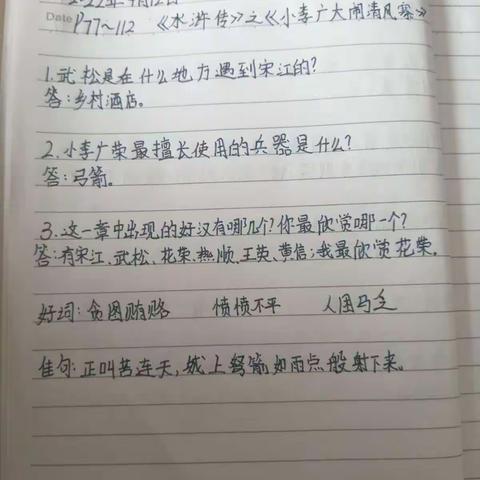 Date P77~112 《水浒传》之《小李广大闹清风寨》
1.武松是在什么地方遇到宋江的?
答:乡村酒店。
2.小李广荣最擅长使用的兵器是什么?
答:弓箭。
3.这一章中出现的好汉有哪几个?你最欣赏哪一个?
答:有宋江、武松、花荣、燕顺、王英、黄信;我最欣赏花荣。
好词:贪图贿赂 愤愤不平 人困马乏
佳句:正叫苦连天,城上弩箭如雨点般射下来。